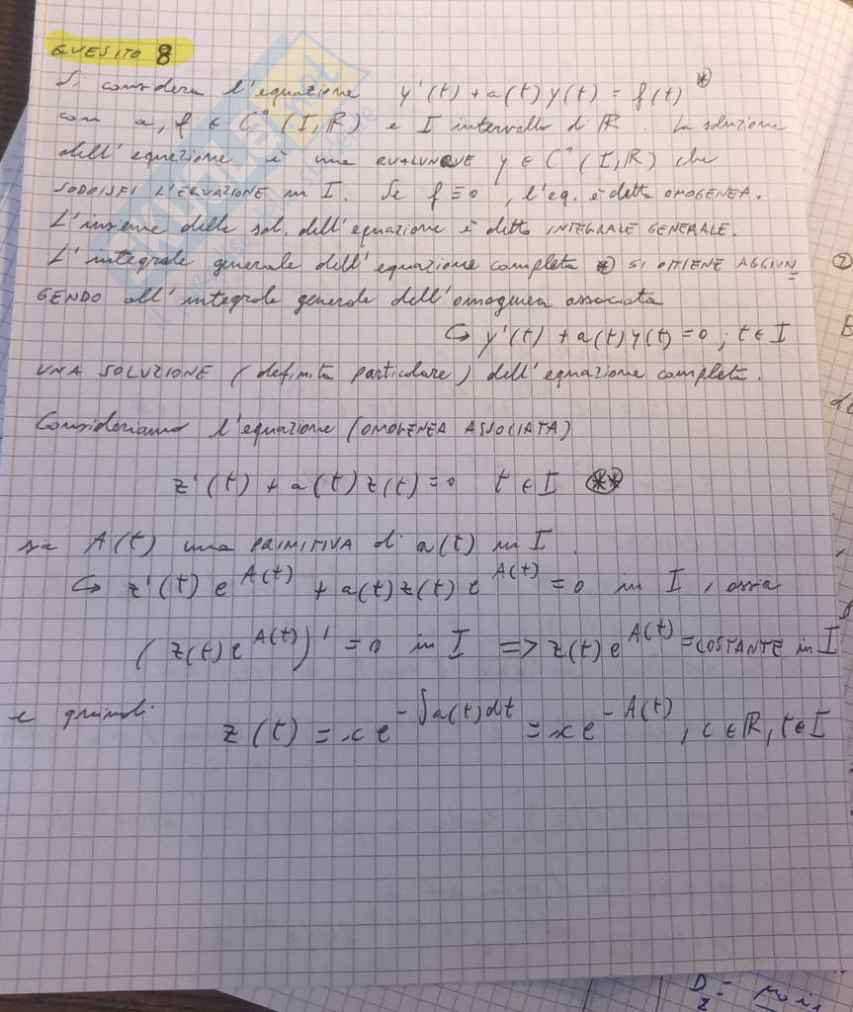 QUESITO 8
Si considera l'equazione y'(t) + a(t) y(t) = f(t) *
con a, f ∈ C°(I, R) e I intervallo di R. La soluzione
dell'equazione è una QUALUNQUE y ∈ C¹(I, R) che
SODDISFI L'EQUAZIONE in I. Se f ≡ 0, l'eq. è detta OMOGENEA.
L'insieme delle sol. dell'equazione è detto INTEGRALE GENERALE.
L'integrale generale dell'equazione completa * SI OTTIENE AGGIUN
GENDO all'integrale generale dell'omogenea associata
↪ y'(t) + a(t) y(t) = 0 ; t ∈ I
UNA SOLUZIONE (definita particolare) dell'equazione completa.
Consideriamo l'equazione (OMOGENEA ASSOCIATA)
z'(t) + a(t) z(t) = 0 t ∈ I **
sia A(t) una PRIMITIVA di a(t) in I.
↪ z'(t) e^A(t) + a(t) z(t) e^A(t) = 0 in I, ossia
(z(t) e^A(t))' = 0 in I => z(t) e^A(t) = COSTANTE in I
e quindi z(t) = c e^-∫a(t)dt = c e^-A(t), c ∈ R, t ∈ I
D/2 =